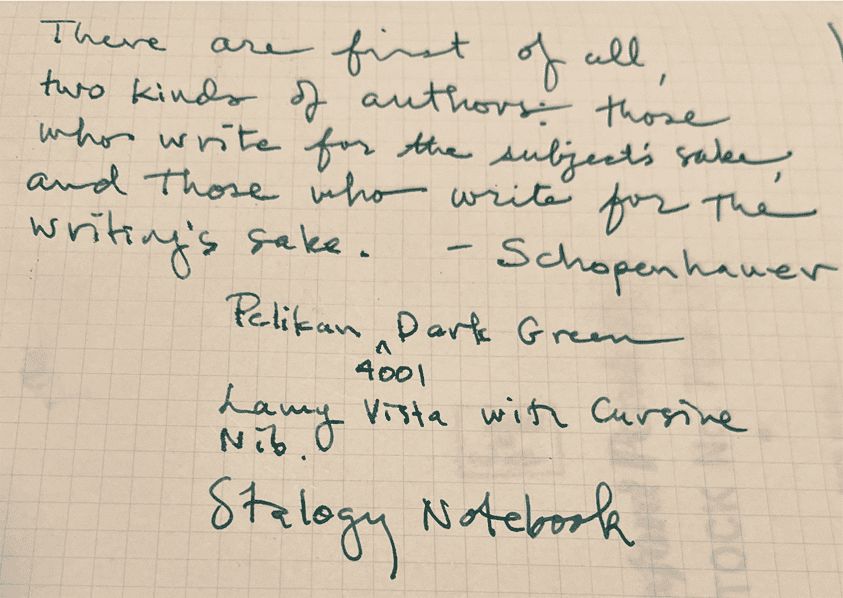 There are first of all,
two kinds of authors: those
who write for the subject's sake,
and those who write for the
writing's sake. - Schopenhauer
Pelikan ^ Dark Green
4001
Lamy Vista with Cursive
Nib.
Stalogy Notebook
TOCK N